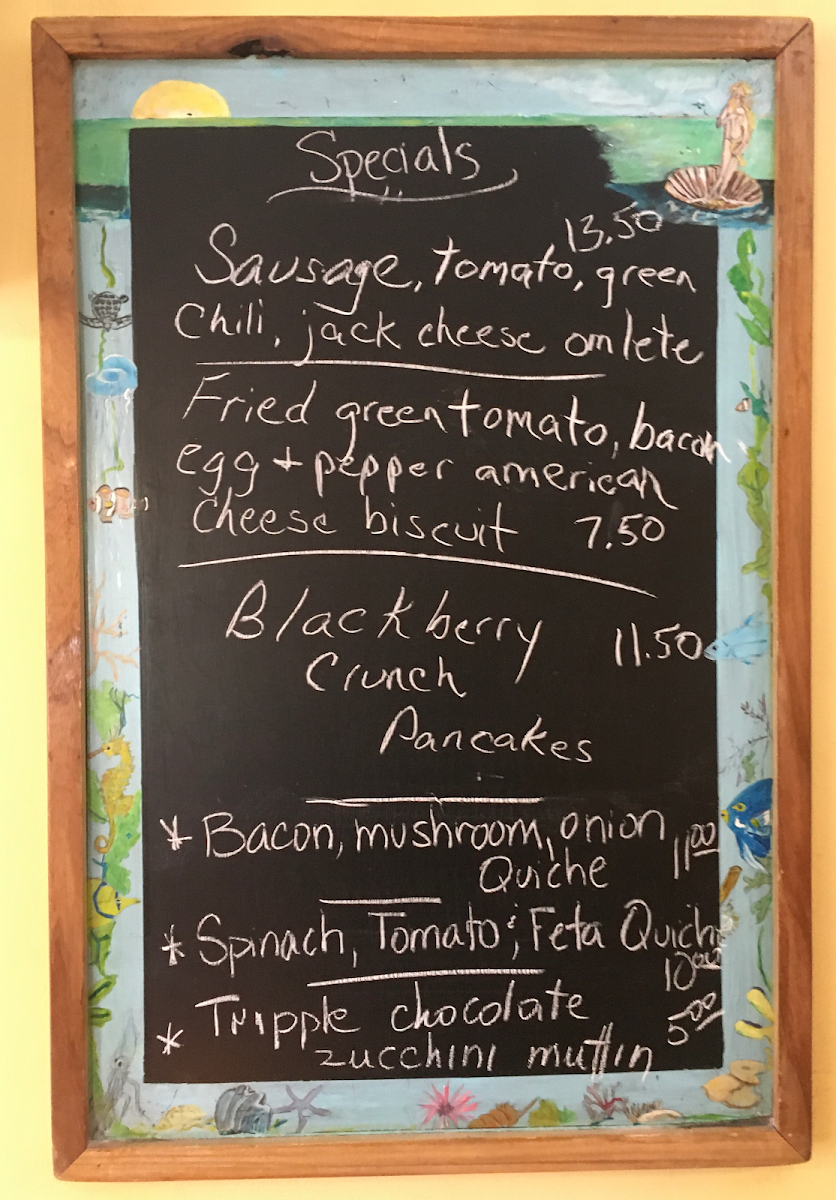 Specials
13.50
Sausage, tomato, green
Chili, jack cheese omlete
Fried green tomato, bacon,
egg + pepper american
cheese biscuit 7.50
Blackberry 11.50
Crunch
Pancakes
* Bacon, mushroom, onion 11.00
Quiche
* Spinach, Tomato & Feta Quiche
10.00
* Tripple chocolate 5.00
zucchini muffin